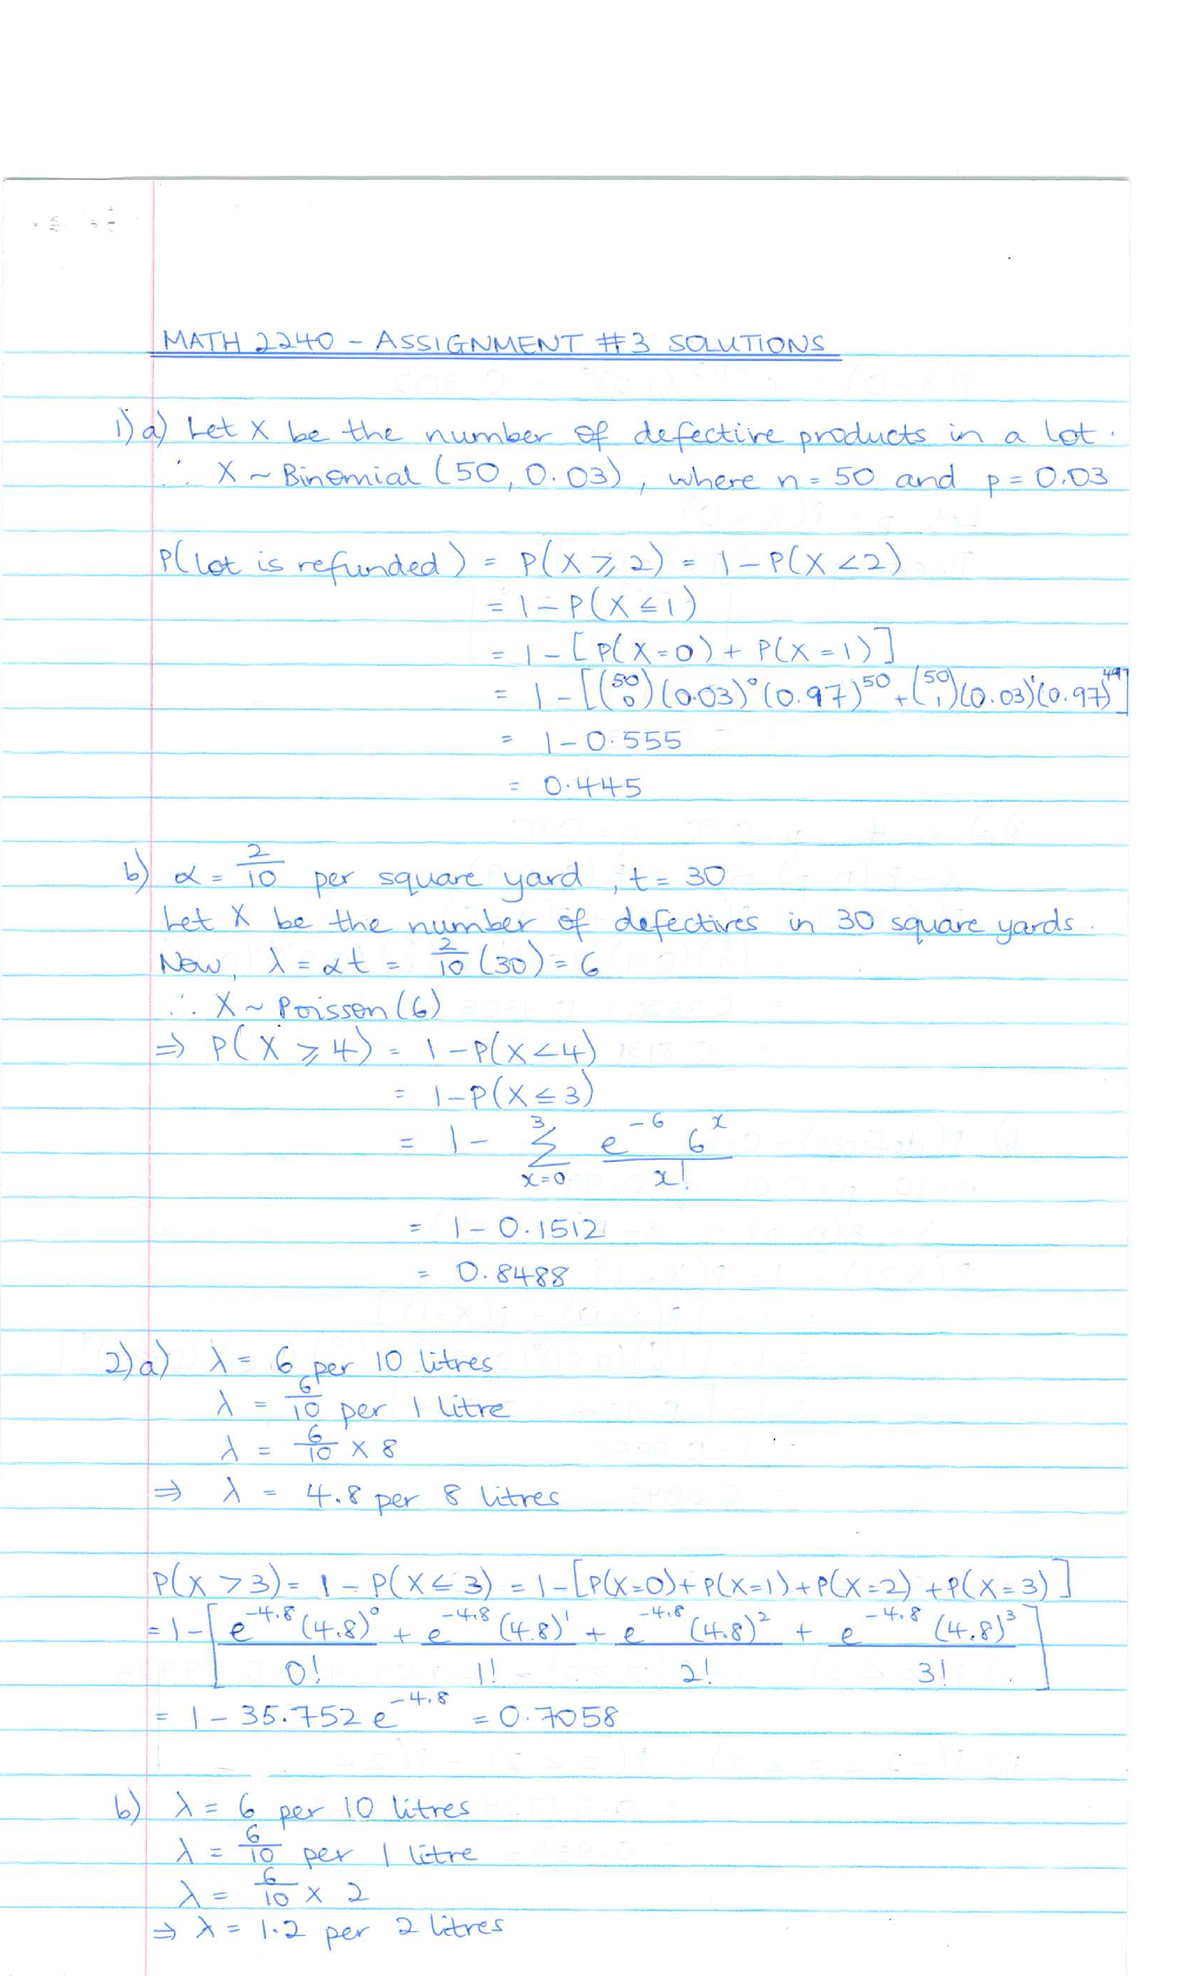 MATH 2240 - ASSIGNMENT #3 SOLUTIONS
1) a) Let X be the number of defective products in a lot.
∴ X ~ Binomial (50, 0.03), where n = 50 and p = 0.03
P(lot is refunded) = P(X ≥ 2) = 1 - P(X < 2)
= 1 - P(X ≤ 1)
= 1 - [P(X = 0) + P(X = 1)]
= 1 - [(50 0)(0.03)⁰(0.97)⁵⁰ + (50 1)(0.03)¹(0.97)⁴⁹]
= 1 - 0.555
= 0.445
b) α = 2/10 per square yard, t = 30
Let X be the number of defectives in 30 square yards.
Now, λ = αt = 2/10 (30) = 6
∴ X ~ Poisson (6)
⇒ P(X ≥ 4) = 1 - P(X < 4)
= 1 - P(X ≤ 3)
= 1 - Σ_{x=0}^{3} e⁻⁶ 6ˣ / x!
= 1 - 0.1512
= 0.8488
2) a) λ = 6 per 10 litres
λ = 6/10 per 1 litre
λ = 6/10 × 8
⇒ λ = 4.8 per 8 litres
P(X > 3) = 1 - P(X ≤ 3) = 1 - [P(X=0) + P(X=1) + P(X=2) + P(X=3)]
= 1 - [e^{-4.8} (4.8)⁰ / 0! + e^{-4.8} (4.8)¹ / 1! + e^{-4.8} (4.8)² / 2! + e^{-4.8} (4.8)³ / 3!]
= 1 - 35.752 e^{-4.8} = 0.7058
b) λ = 6 per 10 litres
λ = 6/10 per 1 litre
λ = 6/10 × 2
⇒ λ = 1.2 per 2 litres